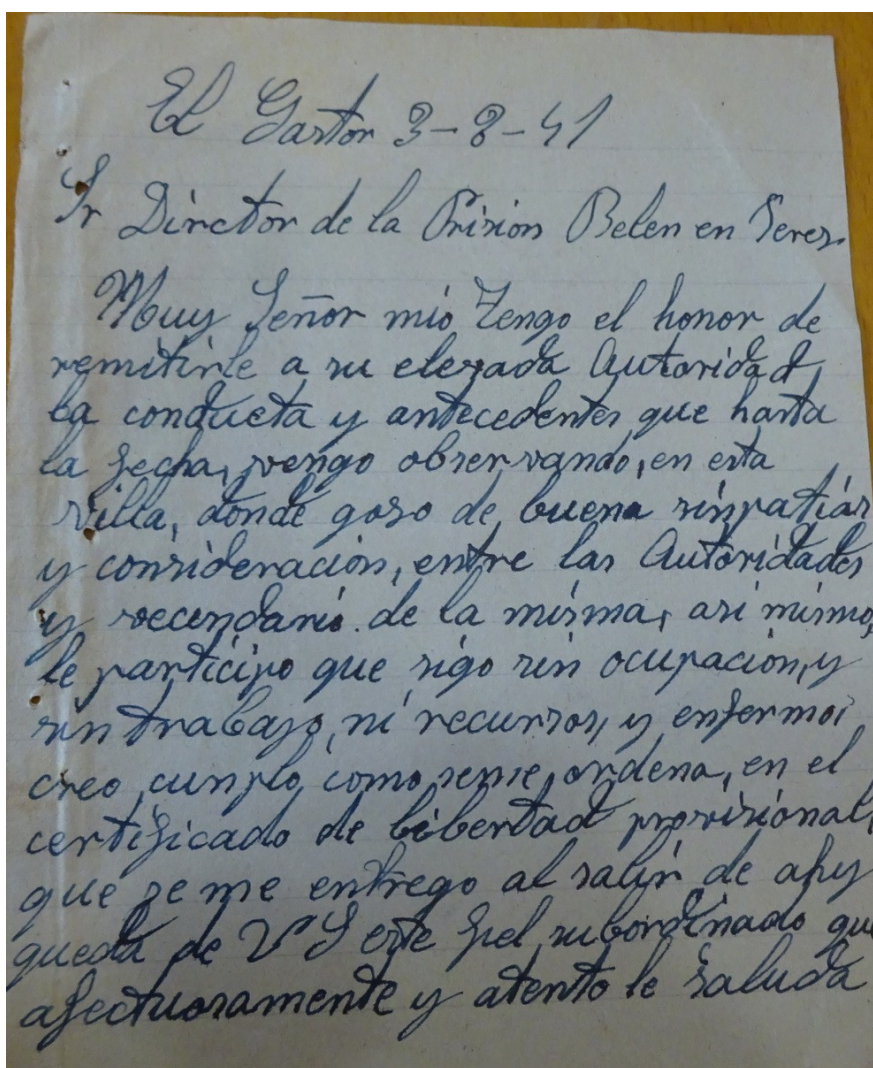 El Gastor 3-8-41
Sr Dirctor de la Prision Belen en Jerez.
Muy Señor mio Tengo el honor de
remitirle a su elevada Autoridad,
la conducta y antecedentes que hasta
la fecha, vengo observando, en esta
villa, donde goso de buena sinpatias
y consideracion, entre las Autoridades
y vecendario de la misma, asi mismo,
le participo que sigo sin ocupacion, y
sin trabajo, ni recursos, y enfermo,
creo cunplo, como seme, ordena, en el
certificado de libertad provisional,
que se me entrego al salir de ahy
queda de V S este fiel subordinado que
afectuosamente y atento le saluda